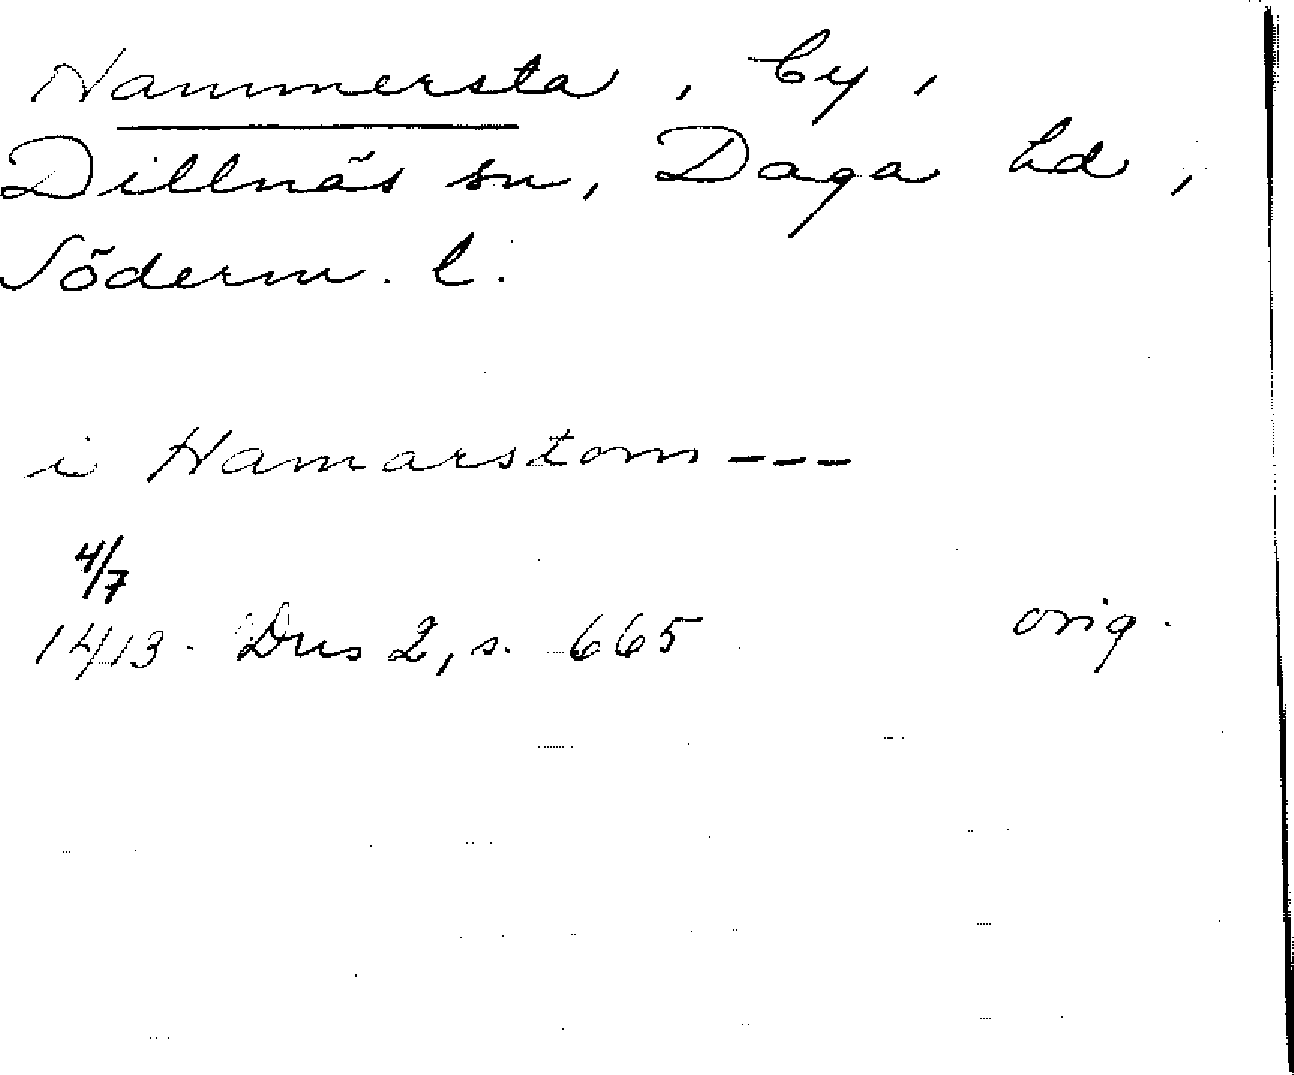 Hammersta, by,
Dillnäs sn, Daga hd,
Söderm. l.
i Hamarstom ---
4/7
1413. Dns 2, s. 665 orig.